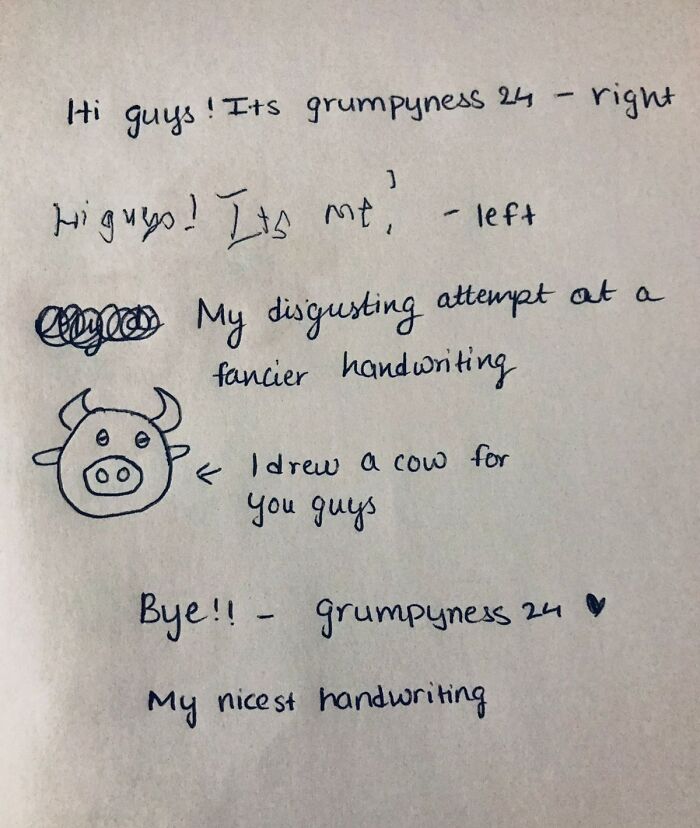 Hi guys! Its grumpyness 24 - right
Hi guys! Its me! - left
My disgusting attempt at a
fancier handwriting
← I drew a cow for
you guys
Bye!! - grumpyness 24 ♥
My nicest handwriting